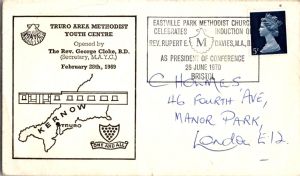 TRURO AREA METHODIST
YOUTH CENTRE
Opened by
The Rev. George Cloke, B.D.
(Secretary, M.A.Y.C.)
February 28th, 1969
KERNOW
TRURO
ONE AND ALL
EASTVILLE PARK METHODIST CHURCH
CELEBRATES INDUCTION O
REV. RUPERT E DAVIES, M.A., B
M
AS PRESIDENT OF CONFERENCE
26 JUNE 1970
BRISTOL
5
C HOLMES
46 FOURTH AVE,
MANOR PARK,
London E12.